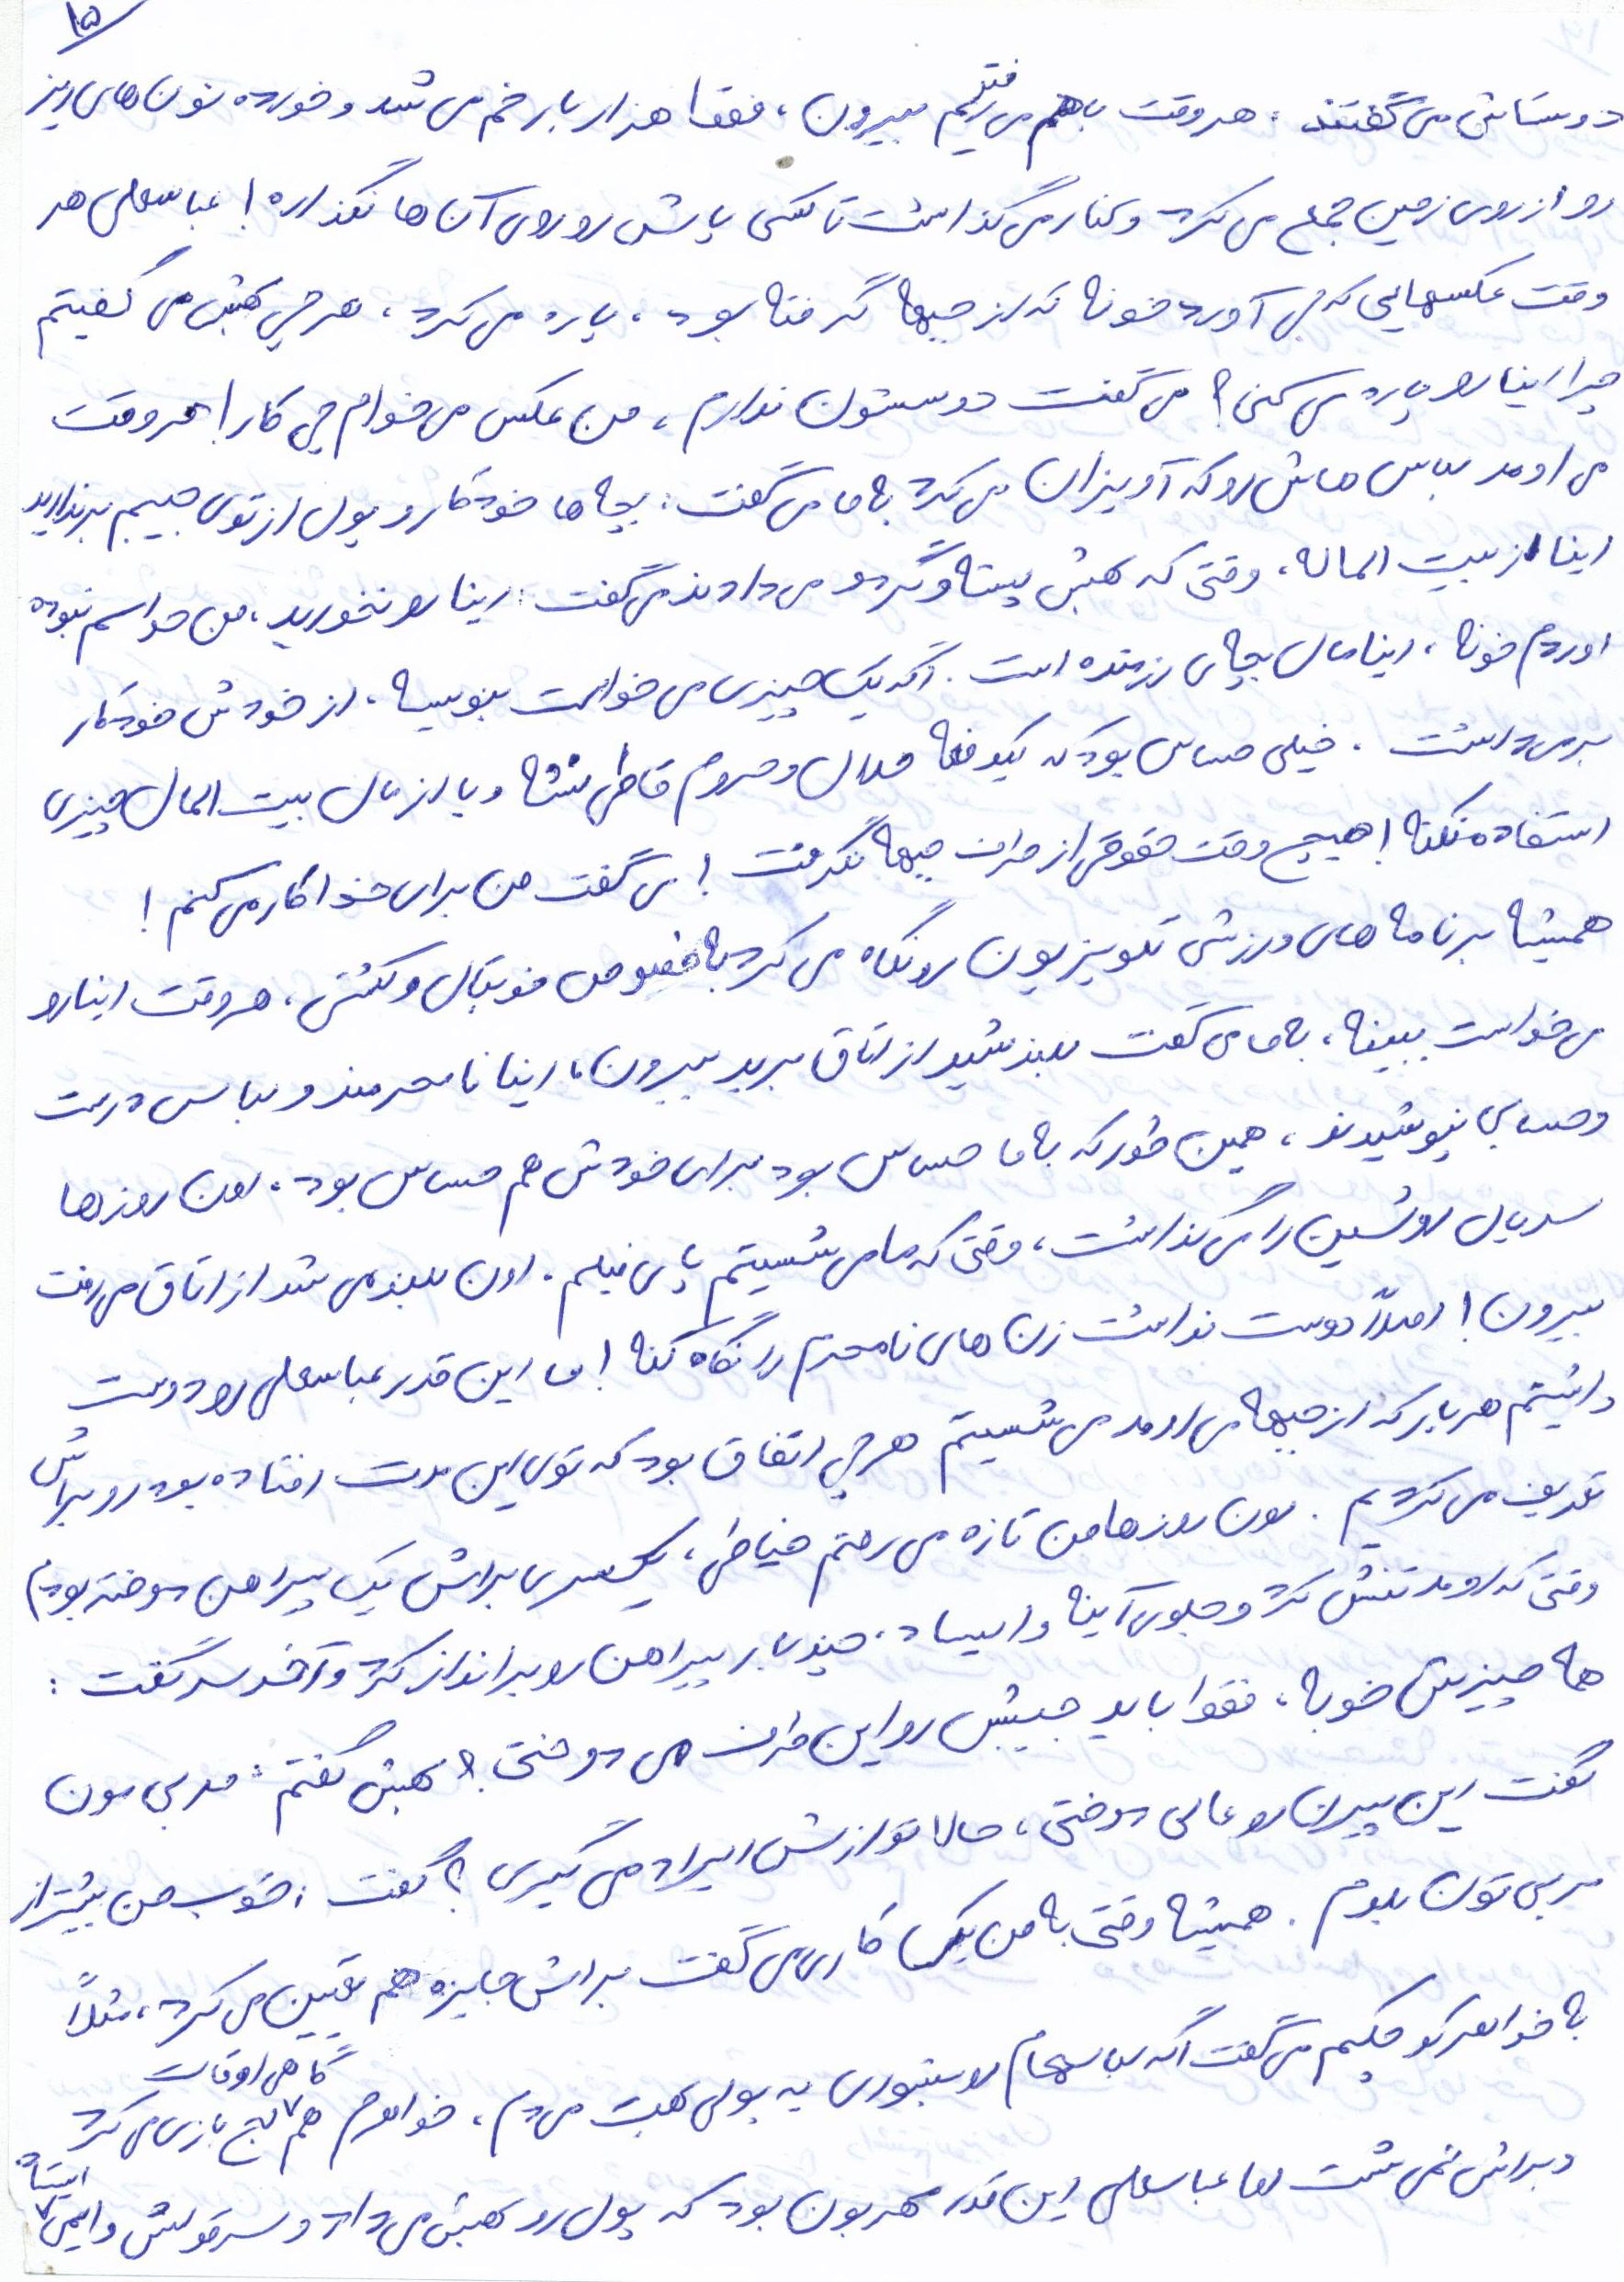 ۱۵
دوستاش می‌گفتند: هر وقت باهم می‌رفتیم بیرون، فقط هزار بار خم می‌شد و خورده نون‌های ریز
رو از روی زمین جمع می‌کرد و کنار می‌گذاشت تا کسی پاش رو روی آن‌ها نگذاره! عباسعلی هر
وقت عکسهایی که می‌آورد خونه که از جبهه گرفته بود، پاره می‌کرد، هر چی بهش می‌گفتیم
چرا اینا رو پاره می‌کنی؟ می‌گفت دوستون ندارم، من عکس می‌خوام چی کار! هر وقت
می‌اومد لباس هاش رو که آویزان می‌کرد به ما می‌گفت: بچه‌ها خودکار و پول از توی جیبم برندارید
اینا از بیت الماله، وقتی که بهش پسته و گردو می‌دادند می‌گفت: اینا رو نخورید، من حواسم نبوده
اوردم خونه، اینا مال بچه‌ای رزمنده است. اگه یک چیزی می‌خواست بنویسه، از خودش خودکار
برمی‌داشت. خیلی حساس بود که یکدفعه حلال و حروم قاطی نشه و یا از مال بیت المال چیزی
استفاده نکنه! هیچ وقت حقوقی از طرف جبهه نگرفت! می‌گفت من برای خدا کار می‌کنم!
همیشه برنامه‌های ورزشی تلویزیون رو نگاه می‌کرد به خصوص فوتبال و کشتی، هر وقت اینا رو
می‌خواست ببینه، به ما می‌گفت بلند شید از اتاق برید بیرون، اینا نامحرمند و لباس درست
و حسابی نپوشیدند، همین طور که به ما حساس بود برای خودش هم حساس بود، اون روزها
سریال اوشین را می‌گذاشت، وقتی که ما می‌شستیم پای فیلم. اون بلند می‌شد از اتاق می‌رفت
بیرون! اصلاً دوست نداشت زن‌های نامحرم را نگاه کنه! ما این قدر عباسعلی رو دوست
داشتیم هر بار که از جبهه می‌اومد می‌شستیم هر چی اتفاق بود که توی این مدت افتاده بود رو براش
تعریف می‌کردیم. اون روزها من تازه می‌رفتم خیاطی، یکسری براش یک پیراهن دوخته بودم
وقتی که اومد تنش کرد و جلوی آینه وایساد، چند بار پیراهن رو برانداز کرد و آخر سر گفت:
هما چیزیش خوبه، فقط باید جیبش رو این طرف می‌دوختی؟ بهش گفتم: مربی مون
گفت این پیرن رو عالی دوختی، حالا تو ازش ایراد می‌گیری؟ گفت: خوب من بیشتر از
مربی تون بلدم. همیشه وقتی به من یک کاری می‌گفت براش جایزه هم تعیین می‌کرد، مثلاً
به خواهر کوچکیم می‌گفت اگه لباسهام رو بشوری یه پولی بهت می‌دم، خواهرم هم گاهی اوقات لج بازی می‌کرد
و براش نمی‌شست اما عباسعلی این قدر مهربون بود که پول رو بهش می‌داد و سر قولش وایمی‌ایستاد